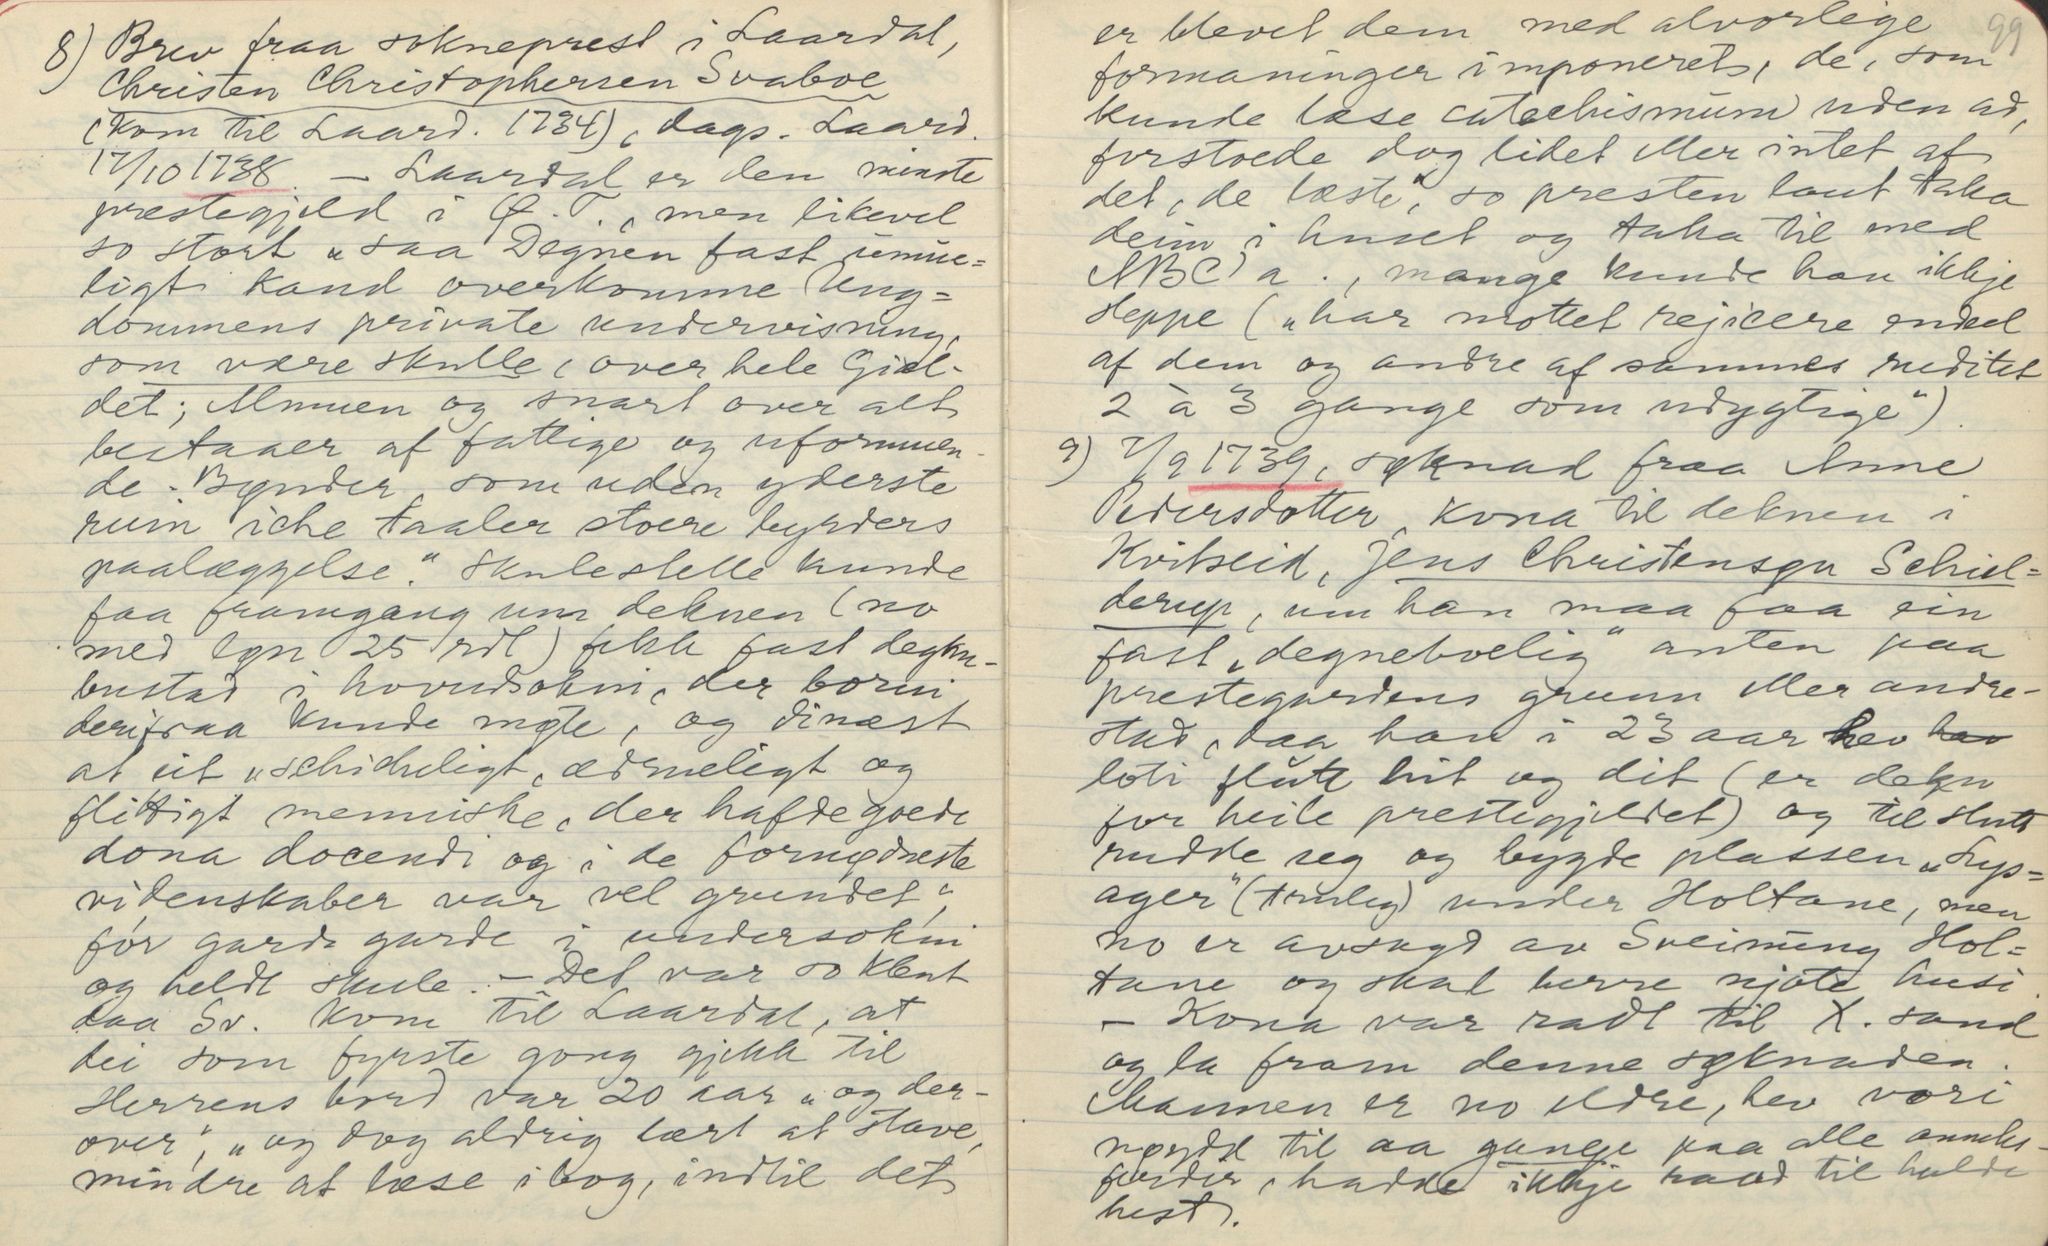 8) Brev fraa sokneprest i Laardal,
Christen Christophersen Svaboe
(kom til Laard. 1734), dags. Laard.
17/10 1738. – Laardal er den minste
prestegjeld i Ø. T., men likevel
so stort „saa Degnen fast umue=
ligt kand overkomme Ung=
dommens private undervisning,
som være skulle, over hele Giel-
det; Almuen og snart over alt
bestaaer af fattige og uformuen-
de Bønder, som uden yderste
ruin icke taaler støre byrders
paalæggelse." Skulestelle kunde
faa framgang um deknen (no
med løn 25 rdl) fekk fast dekne-
bustad i hovudsokni, der borni
derifraa kunde møte, og dinæst
at eit „schickeligt, ædrueligt og
flittigt menniske, der hafde goede
dona docendi og i de fornødneste
videnskaber var vel grundet",
for gard i garde i undersokni
og heldt skule. – Det var so klent
daa Sv. kom til Laardal, at
dei som fyrste gong gjekk til
Herrens bord var 20 aar „og der-
over", „og dog aldrig lært at stave,
mindre at læse i bog, indtil det
99
er blevet dem med alvorlige
formaninger imponeret, de, som
kunde læse catechismum uden ad,
forstoede dog lidet eller intet af
det, de læste", so presten laut taka
deim i huset og taka til med
ABC'a., mange kunde han ikkje
sleppe („har mottet rejicere endeel
af dem og andre af sammes
2 à 3 gange som udygtige")
9) 7/9 1739, søknad fraa Anne
Pedersdotter, kona til deknen i
Kvitseid, Jens Christensøn Schiel=
derup, um han maa faa ein
fast „degneboelig" anten paa
prestegardens grunn eller andre-
stad, daa han i 23 aar hev
loti flutt hit og dit (er dekn
for heile prestegjeldet) og til slutt
rudde seg og bygde plassen „Lys=
ager" (truleg) under Holtane, men
no er avsagd av Sveinung Hol=
tane og skal berre njote husi.
– Kona var radt til X. sand
og la fram denne søknaden.
Mannen er no eldre, hev vori
nøydd til aa gange paa alle anneks-
ferder, hadde ikkje raad til halde
hest.